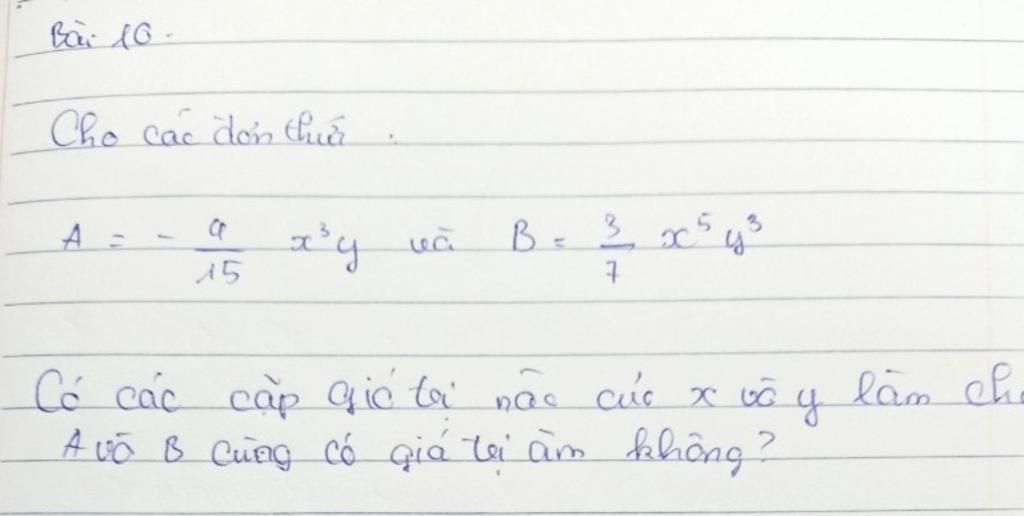 Bài 16.
Cho các đơn thức.
A = - 4/15 x³y và B = 3/7 x⁵y³
Có các cặp giá trị nào của x và y làm cho
A và B cùng có giá trị âm không?